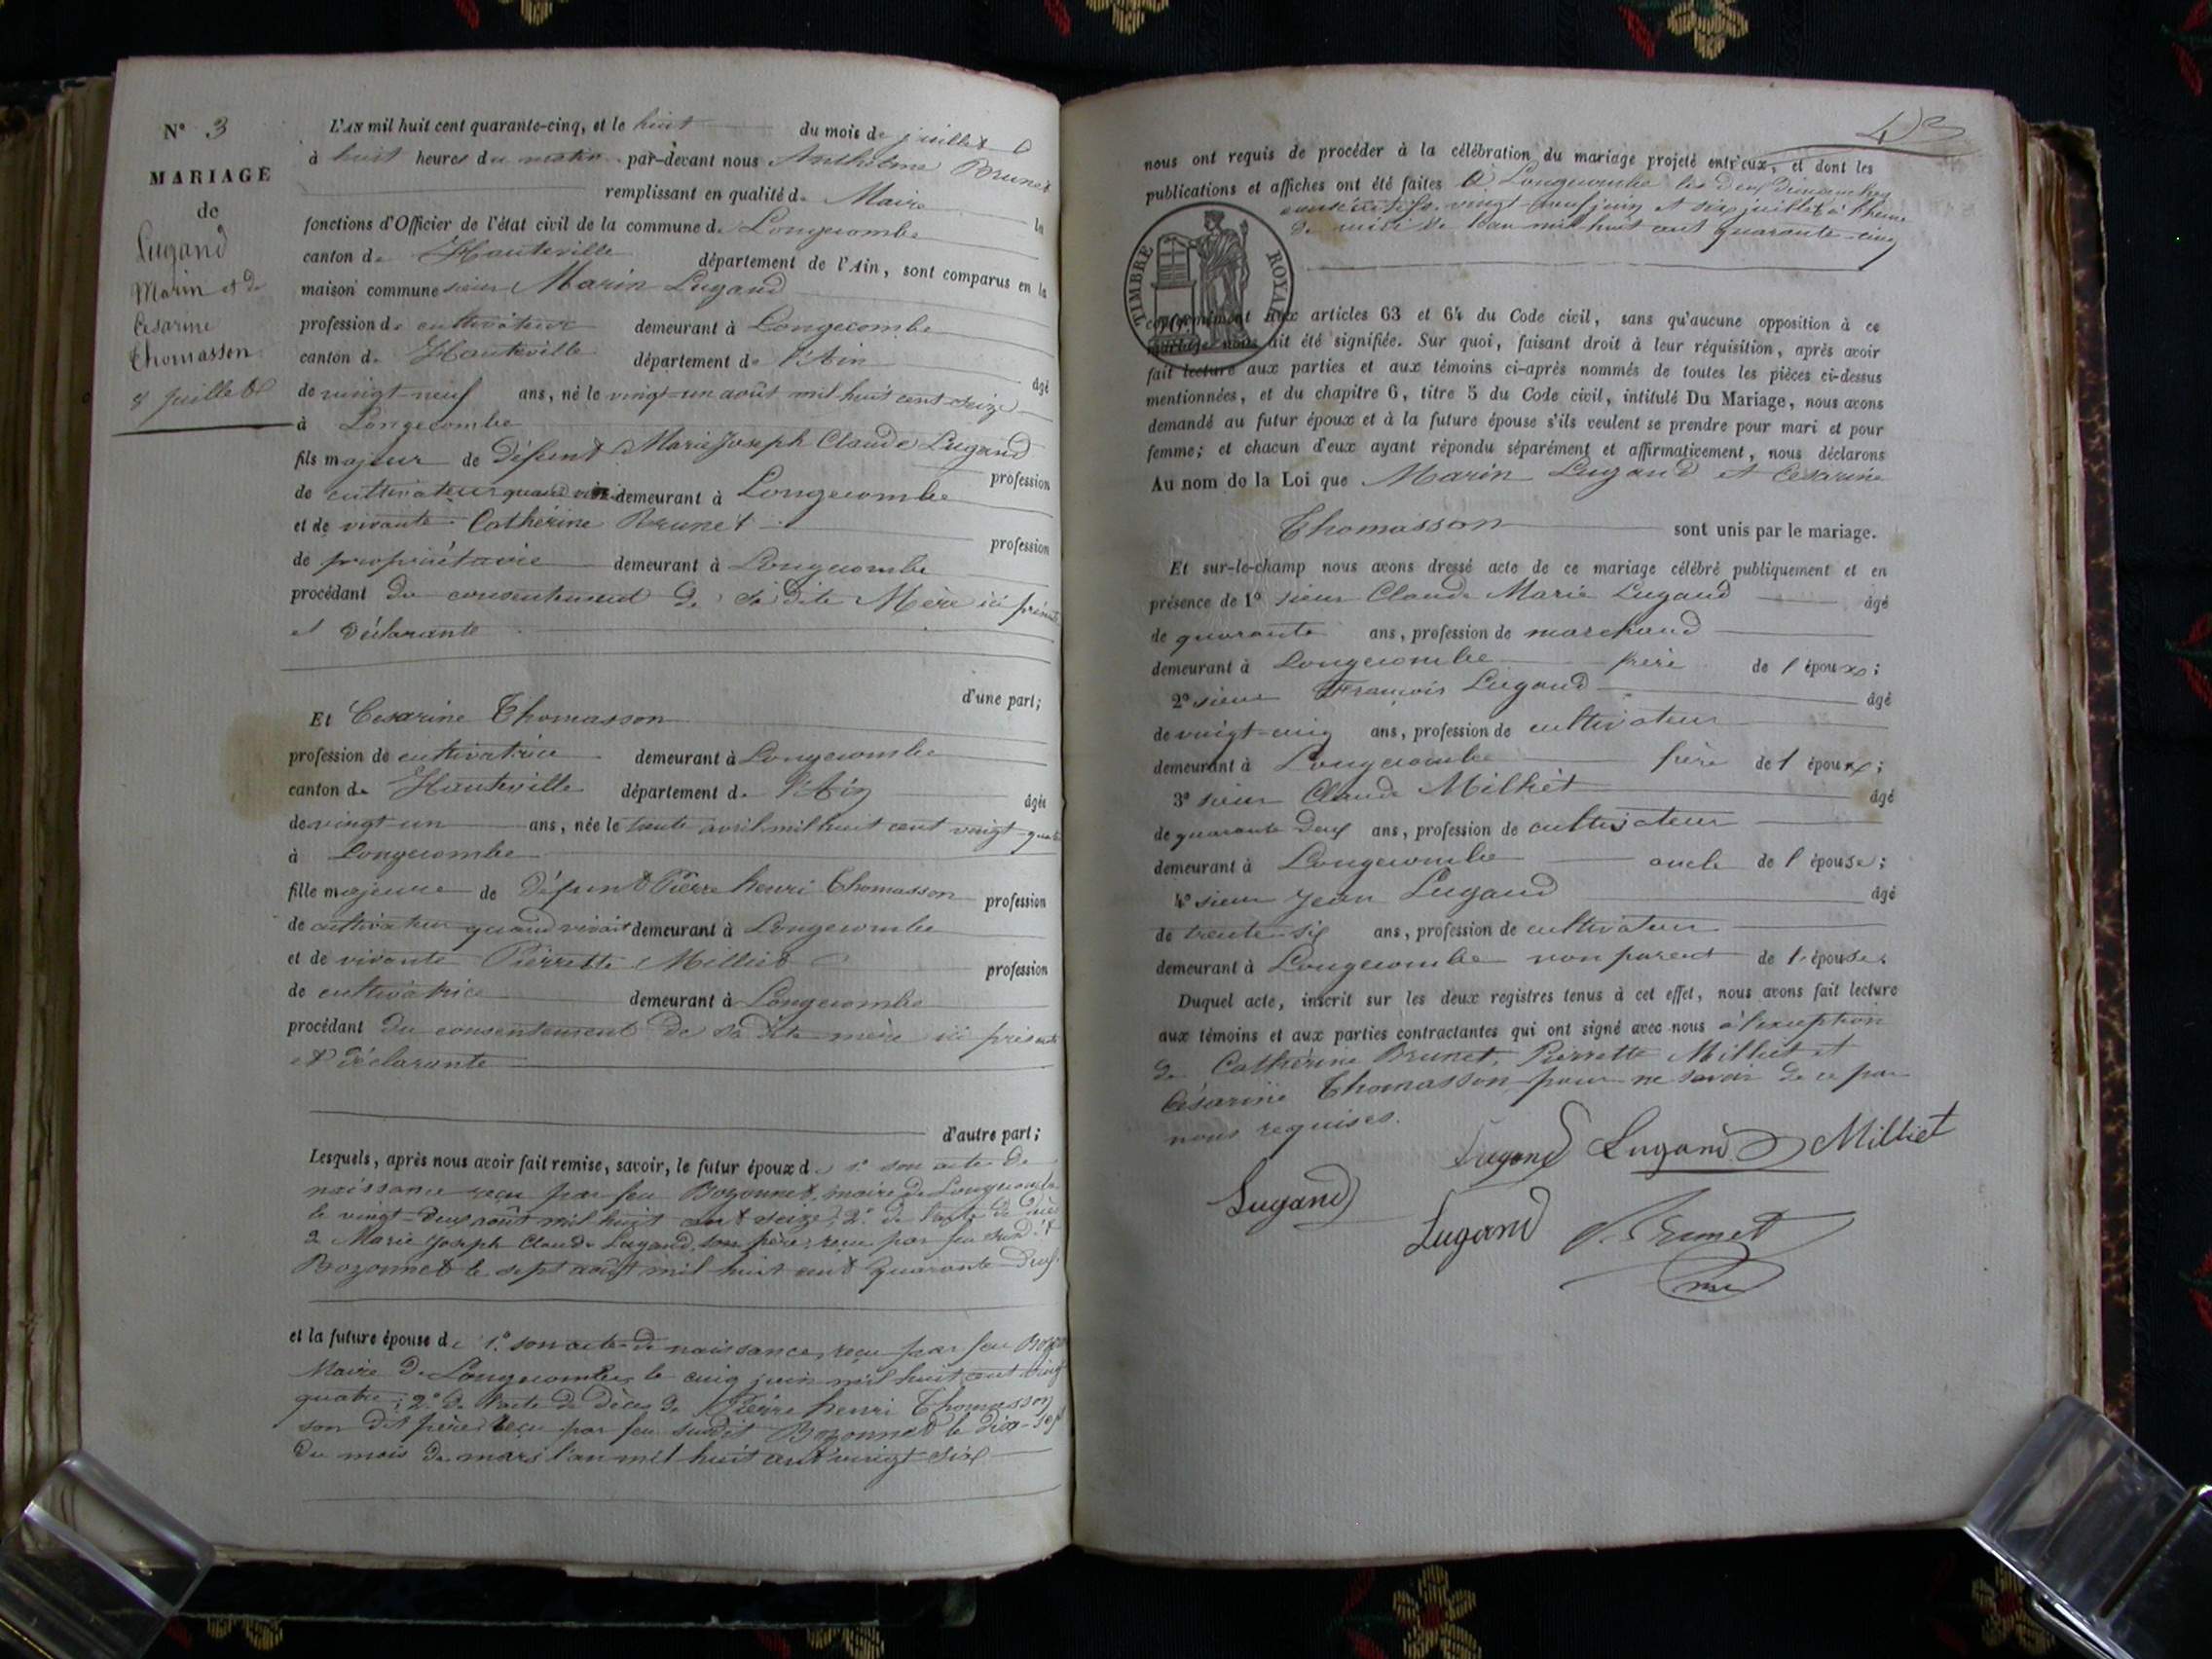 N° 3
MARIAGE
de
Lugand
Marin et de
Césarine
Thomasson
8 juillet
L'AN mil huit cent quarante-cinq, et le huit du mois de juillet
à huit heures du matin par-devant nous Anthelme Brunet
remplissant en qualité de Maire la
fonctions d'Officier de l'état civil de la commune de Longecombe
canton de Hauteville département de l'Ain, sont comparus en la
maison commune sieur Marin Lugand
profession de cultivateur demeurant à Longecombe
canton de Hauteville département de l'Ain âgé
de vingt-neuf ans, né le vingt-un août mil huit cent seize
à Longecombe
fils majeur de défunt Marie Joseph Claude Lugand profession
de cultivateur quand vivait demeurant à Longecombe
et de vivante Cathérine Brunet profession
de propriétaire demeurant à Longecombe
procédant du consentement de sa dite Mère ici présente
et déclarante
d'une part;
Et Cesarine Thomasson
profession de cultivatrice demeurant à Longecombe
canton de Hauteville département de l'Ain âgée
de vingt-un ans, née le trente avril mil huit cent vingt-quatre
à Longecombe
fille majeure de défunt Pierre henri Thomasson profession
de cultivateur quand vivait demeurant à Longecombe
et de vivante Pierrette Milliet profession
de cultivatrice demeurant à Longecombe
procédant du consentement de sa dite mère ici présente
et déclarante
d'autre part;
Lesquels, après nous avoir fait remise, savoir, le futur époux de 1° son acte de
naissance reçu par feu Bozonnet, maire de Longecombe
le vingt-deux août mil huit cent seize; 2° de l'acte de décès
de Marie Joseph Claude Lugand, son père, reçu par feu susdit
Bozonnet le sept août mil huit cent quarante-deux
et la future épouse de 1° son acte de naissance, reçu par feu
Maire de Longecombe, le cinq juin mil huit cent vingt
quatre; 2° de l'acte de décès de Pierre henri Thomasson
son dit père, reçu par feu susdit Bozonnet le dix-sept
du mois de mars l'an mil huit cent vingt six
nous ont requis de procéder à la célébration du mariage projeté entr'eux, et dont les
publications et affiches ont été faites à Longecombe les deux dimanches
consécutifs vingt-neuf juin et six juillet à l'heure
de midi de l'an mil huit cent quarante-cinq
TIMBRE ROYAL
conformément aux articles 63 et 64 du Code civil, sans qu'aucune opposition à ce
mariage nous ait été signifiée. Sur quoi, faisant droit à leur réquisition, après avoir
fait lecture aux parties et aux témoins ci-après nommés de toutes les pièces ci-dessus
mentionnées, et du chapitre 6, titre 5 du Code civil, intitulé Du Mariage, nous avons
demandé au futur époux et à la future épouse s'ils veulent se prendre pour mari et pour
femme; et chacun d'eux ayant répondu séparément et affirmativement, nous déclarons
Au nom de la Loi que Marin Lugand et Césarine
Thomasson sont unis par le mariage.
Et sur-le-champ nous avons dressé acte de ce mariage célébré publiquement et en
présence de 1° sieur Claude Marie Lugand âgé
de quarante ans, profession de marchand
demeurant à Longecombe frère de l'époux;
2° sieur François Lugand âgé
de vingt-cinq ans, profession de cultivateur
demeurant à Longecombe frère de l'époux;
3° sieur Claude Milliet âgé
de quarante deux ans, profession de cultivateur
demeurant à Longecombe oncle de l'épouse;
4° sieur Jean Lugand âgé
de trente-six ans, profession de cultivateur
demeurant à Longecombe non parent de l'épouse.
Duquel acte, inscrit sur les deux registres tenus à cet effet, nous avons fait lecture
aux témoins et aux parties contractantes qui ont signé avec nous à l'exception
de Cathérine Brunet, Pierrette Milliet et
Césarine Thomasson pour ne savoir de ce par
nous requises.
Lugand Lugand Milliet
Lugand
Lugand Brunet